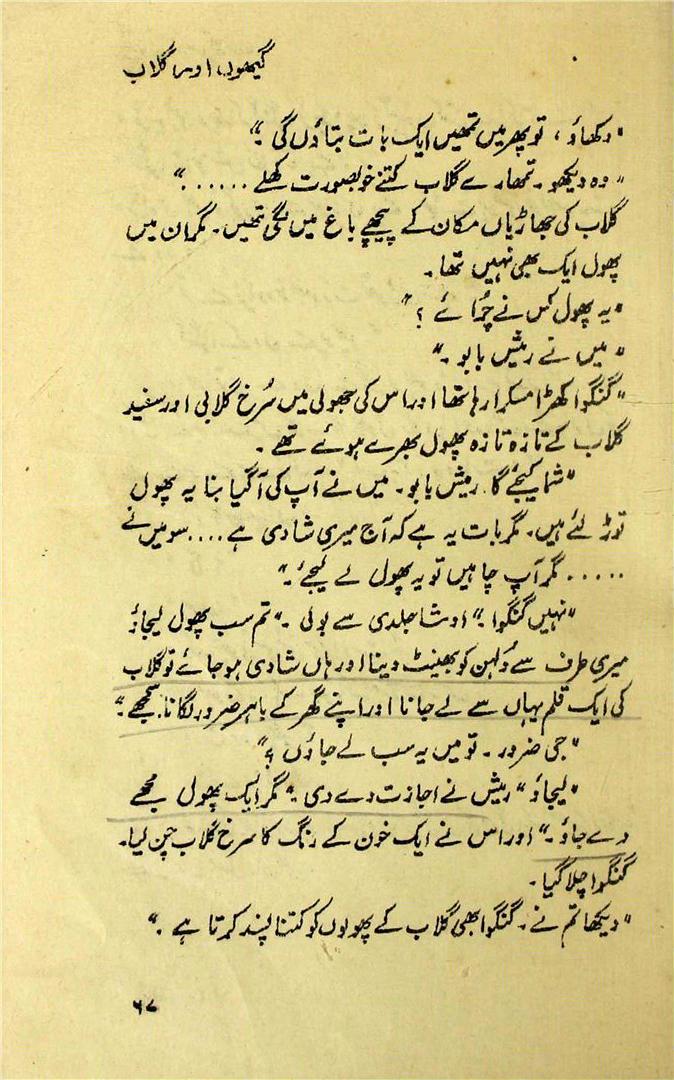 گیہوں اور گلاب
"دکھاؤ، تو پھر میں تمھیں ایک بات بتاؤں گی۔"
"وہ دیکھو۔ تمھارے گلاب کتنے خوبصورت کھلے ......"
گلاب کی جھاڑیاں مکان کے پیچھے باغ میں لگی تھیں۔ مگر ان میں
پھول ایک بھی نہیں تھا۔
"یہ پھول کس نے چُرائے؟"
"میں نے رمیش بابو۔"
"گنگوا کھڑا مسکرا رہا تھا اور اس کی جھولی میں سُرخ گلابی اور سفید
گلاب کے تازہ تازہ پھول بھرے ہوئے تھے۔
"شما کیجئے گا۔ رمیش بابو۔ میں نے آپ کی آگیا بنا یہ پھول
توڑ لئے ہیں۔ مگر بات یہ ہے کہ آج میری شادی ہے .... سو میں نے
..... مگر آپ چاہیں تو یہ پھول لے لیجئے۔"
"نہیں گنگوا۔" اوشا جلدی سے بولی۔ "تم سب پھول لیجاؤ
میری طرف سے دُلہن کو بھینٹ دینا اور ہاں شادی ہو جائے تو گلاب
کی ایک قلم یہاں سے لے جانا اور اپنے گھر کے باہر ضرور لگانا۔ سمجھے۔"
"جی ضرور۔ تو میں یہ سب لے جاؤں؟"
"لیجاؤ" رمیش نے اجازت دے دی۔ "مگر ایک پھول مجھے
دے جاؤ۔" اور اس نے ایک خون کے رنگ کا سرخ گلاب چن لیا۔
گنگوا چلا گیا۔
"دیکھا تم نے۔ گنگوا بھی گلاب کے پھولوں کو کتنا پسند کرتا ہے۔"
۶۷